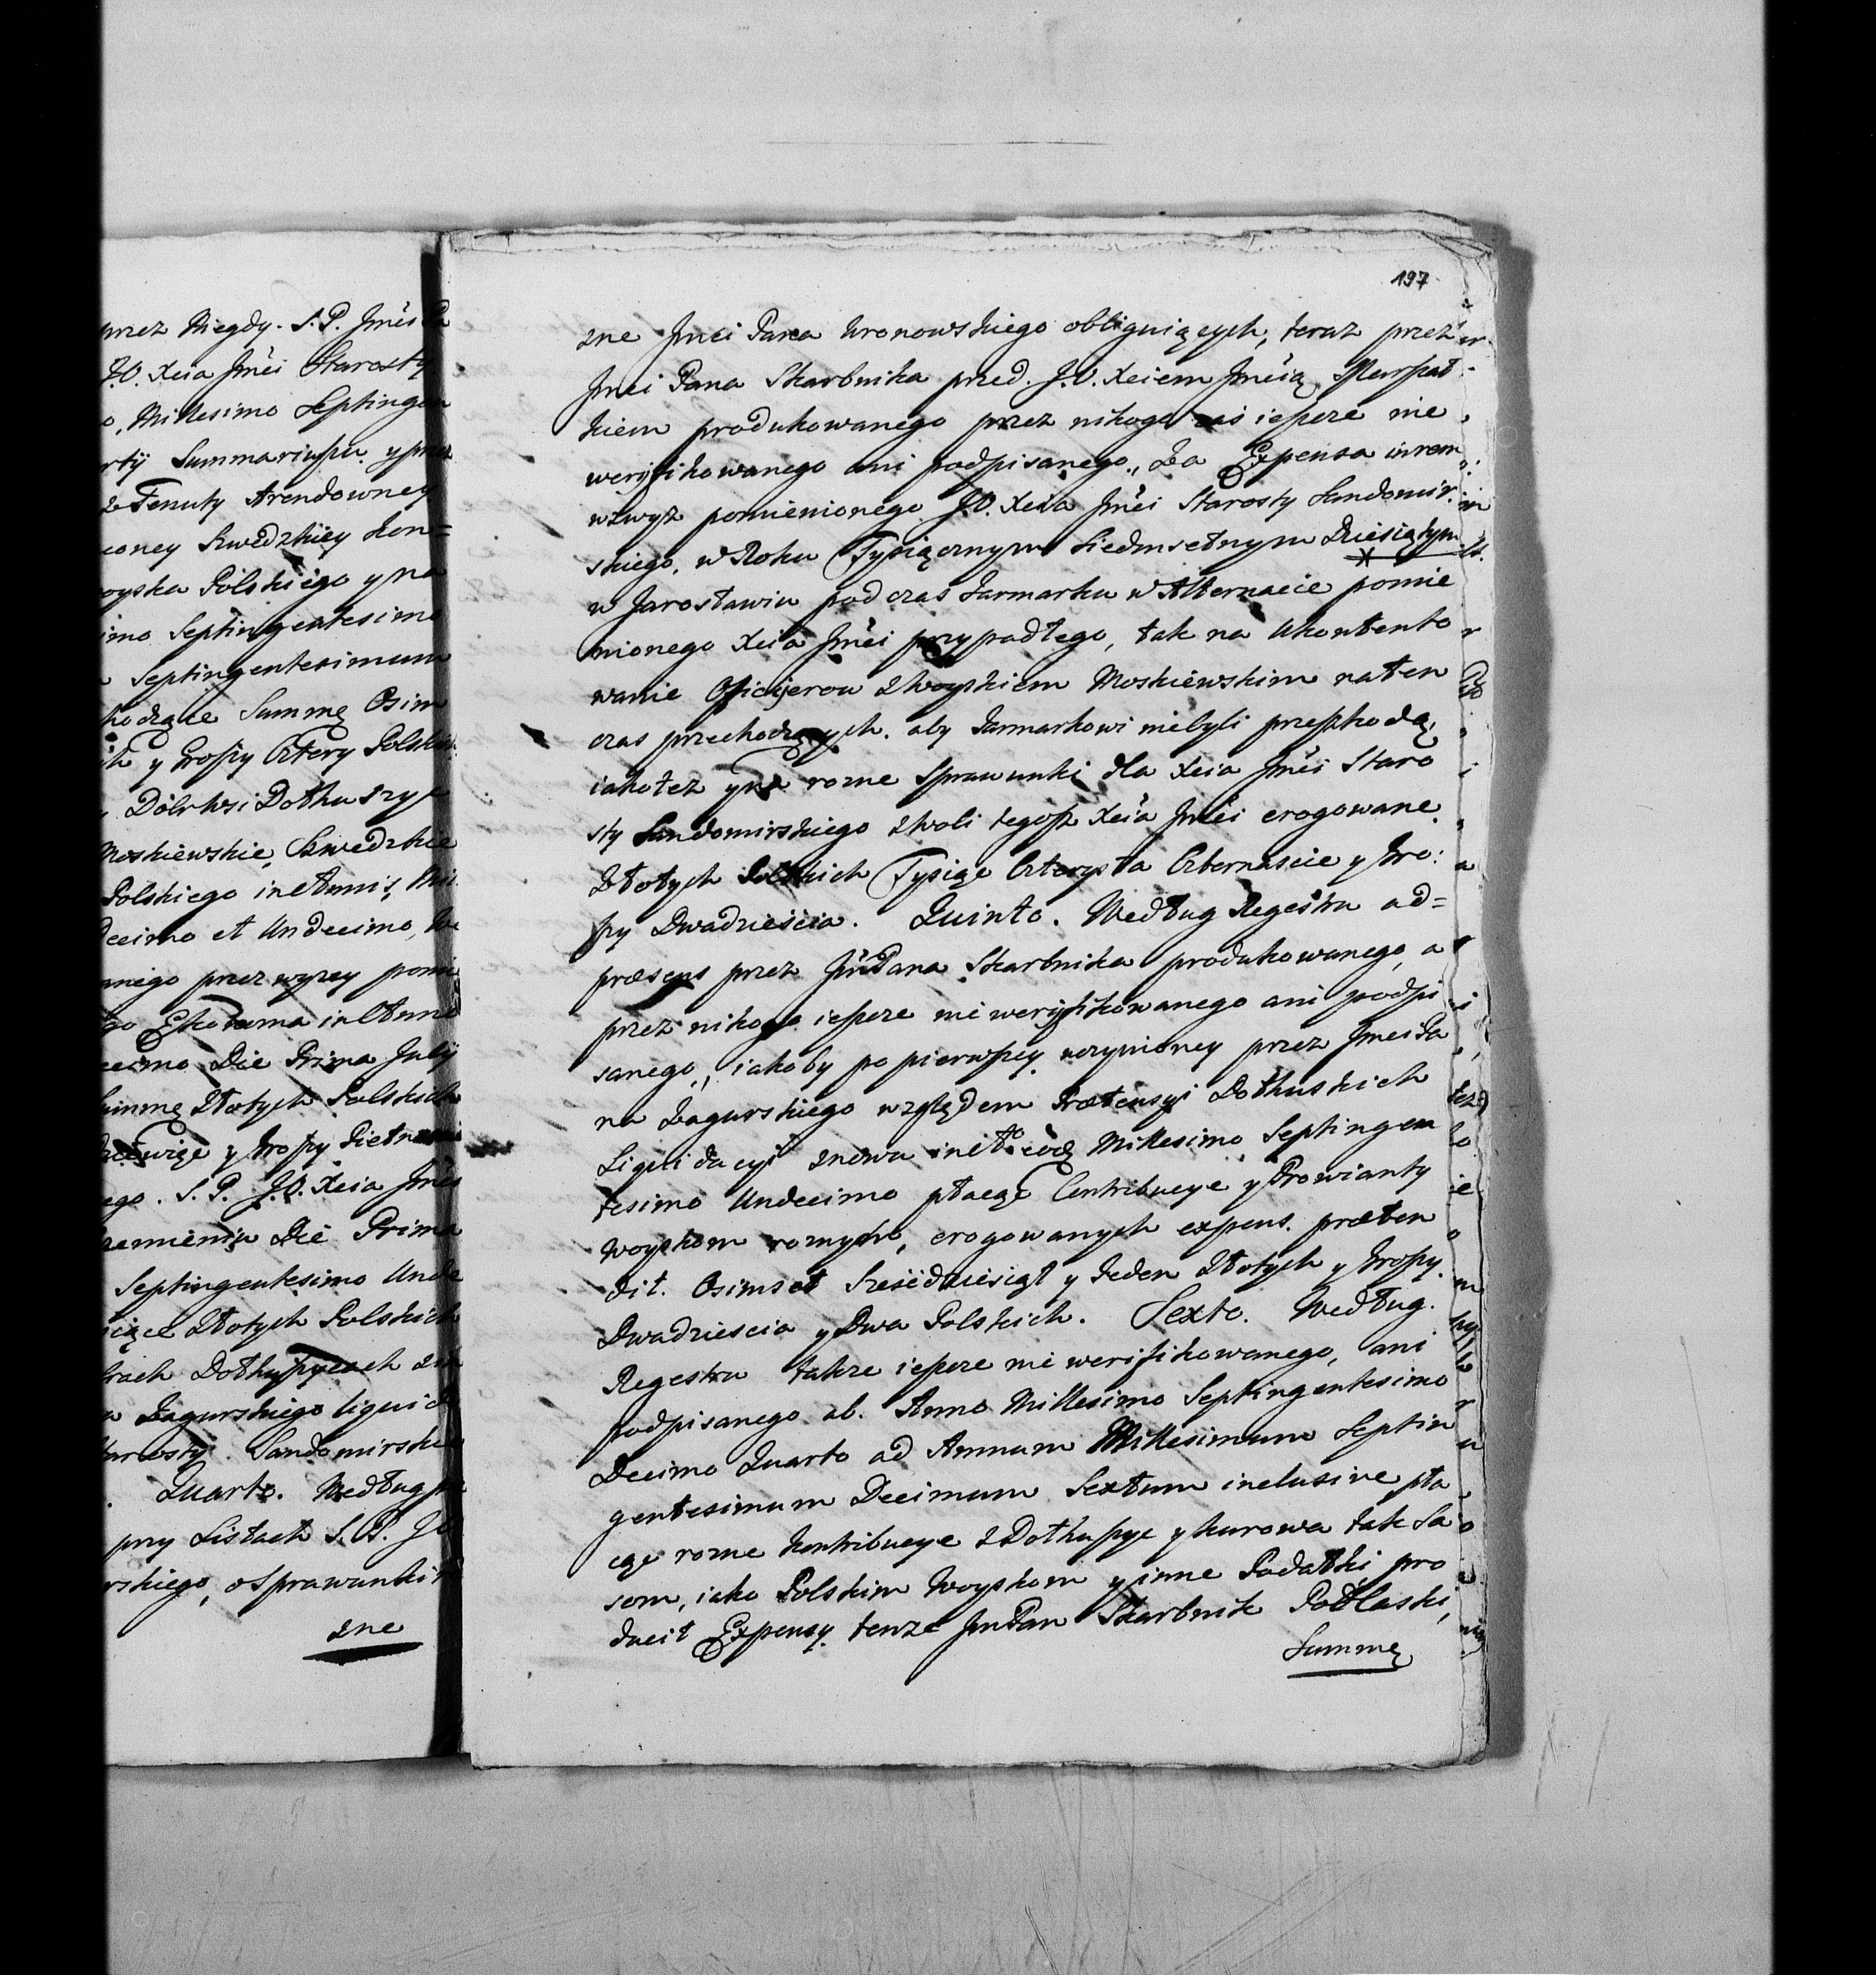 przez Niegdy. S.P. Jmći Pa
J.O. Xcia Jmći Starosty
o, Millesimo Septingen
rty Summariuszu y przez
z Tenuty Arendowney
coney Szwedzkiey Kon=
oyska Polskiego y na
imo Septingentesimo
Septingentesimum
hodzące Summę Osim
ch y Groszy Cztery Polskich
Moskiewskie, Szwedzkie
Polskiego in Annis, Mil
decimo et Undecimo, We
anego przez wyzey pomie
go Ekonoma in Anno
ecimo Die Prima Julij
Summę Złotych Polskich
y Groszy Pietnascie
ego. S.P. J.O. Xcia Jmći
zemieniu Die Prima
Septingentesimo Unde
siące Złotych Polskich
Zagurskiego liquido
tarosty Sandomirskie
Quarto. Według
przy Listach S.P. J.O
rskiego, o Sprawunki
zne
197
zne Jmći Pana Wronowskiego obliguiących, teraz przez
Jmći Pana Skarbnika przed. J.O. Xciem Jmćią Marszał
kiem produkowanego przez nikogo zas ieszcze nie
weryfikowanego ani podpisanego, Za Expensa in rem
wzwyz pomienionego J.O. Xcia Jmći Starosty Sandomir.
skiego, w Roku Tysiącznym Siedmsetnym Dziesiątym
w Jarosławiu pod czas Jarmarku w Alternacie pomie
nionego Xcia Jmći przypadłego, tak na Ukontento
wanie Oficijerow z Woyskiem Moskiewskim na ten
czas przechodzących. aby Jarmarkowi niebyli przeszkodą,
iakotez y na rozne Sprawunki dla Xcia Jmći Staro
sty Sandomirskiego z woli tegosz Xcia Jmći erogowane.
Złotych Polskich Tysiąc Czterysta Czternascie y Gro:
szy Dwadziescia. Quinto. Według Regestru ad=
præsens przez JmPana Skarbnika produkowanego, a
przez nikogo ieszcze nie weryfikowanego ani podpi
sanego, iakoby po pierwszey uczynioney przez Jmći Pa
na Zagurskiego względem Prætensyi Dołhuskich
Liquidacyi znowu in Ao eod. Millesimo Septingen
tesimo Undecimo płacąc Contribucye y Prowianty
Woyskom roznych, erogowanych expens. præten
dit. Osimset Szesćdziesiąt y Jeden Złotych y Groszy
Dwadziescia y Dwa Polskich. Sexto. Według
Regestru takze ieszcze nie weryfikowanego, ani
podpisanego ab. Anno Millesimo Septingentesimo
Decimo Quarto ad Annum Millesimum Septin
gentesimum Decimum Sextum inclusive pła
cąc rozne Kontribucye z Dołhuszyc y Kurowa tak Sa
som, iako Polskim Woyskom y inne Podatki pro
ducit Expensy tenze JmPan Skarbnik Podlaski,
Summę